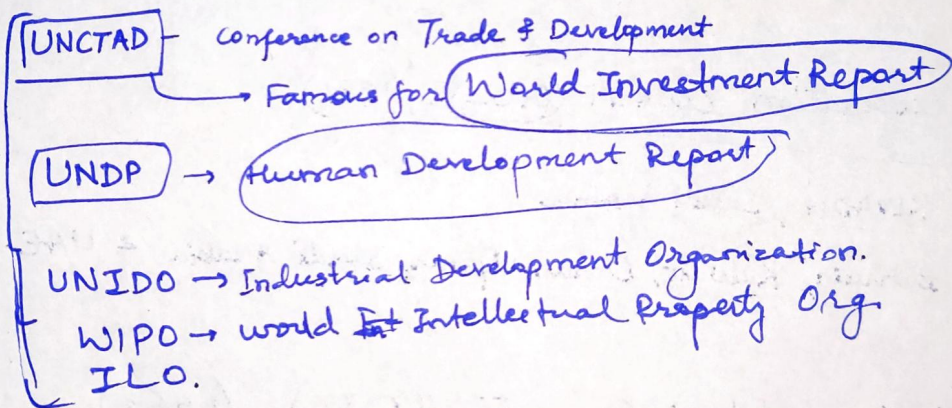 UNCTAD - Conference on Trade & Development
→ Famous for World Investment Report
UNDP → Human Development Report
UNIDO → Industrial Development Organization.
WIPO → world Intellectual Property Org.
ILO.